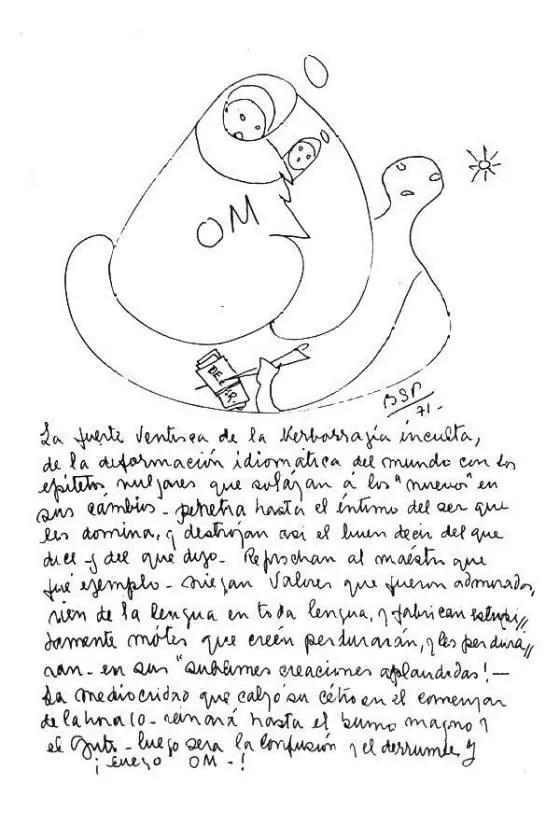 OM
DECIR.
BSP
71-
La fuerte ventisca de la Verborragia inculta,
de la deformación idiomática del mundo con los
epítetos vulgares que solazan a los "nuevos" en
sus cámbios - penetra hasta el íntimo del ser que
les domina, y destrozan asi el buen decir del que
dice y del que dijo - Reprochan al maéstro que
fué ejemplo - niegan Valores que fueron admirados,
rien de la lengua en toda lengua, y fabrican estupi//
damente mótes que creén perdurarán, y les perdura//
ran - en sus "sublimes creaciones aplaudidas! -
La mediocridad que calzó su cétro en el comenzar
de la hora 10 - reinará hasta el sumo magno y
el - luego sera la confusión y el derrumbe y
¡ luego OM - !